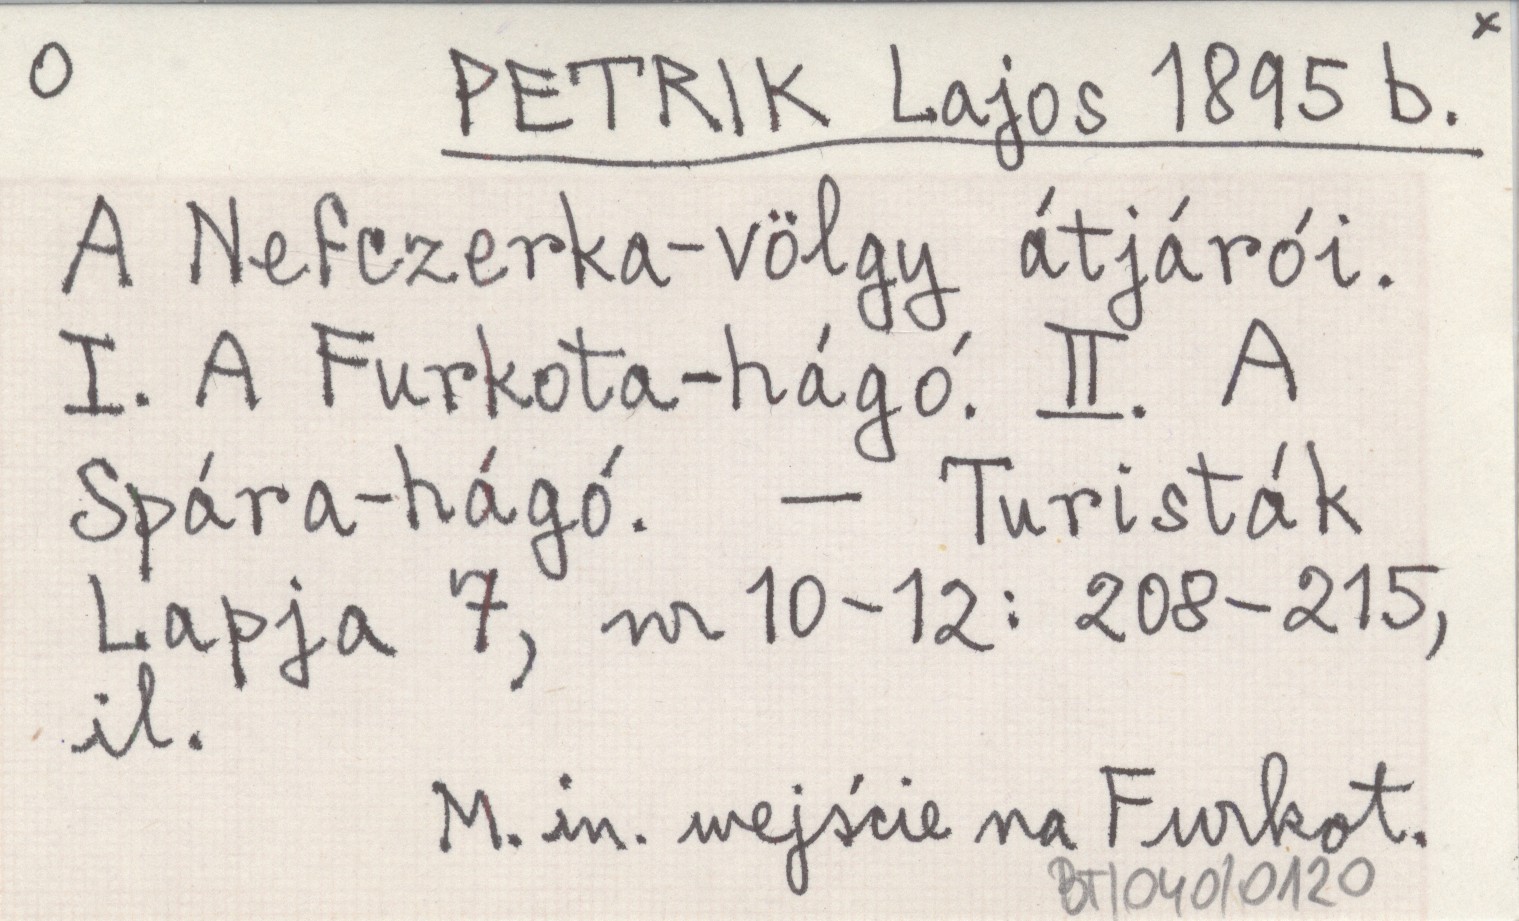 O
x
PETRIK Lajos 1895 b.
A Nefczerka-völgy átjárói.
I. A Furkota-hágó. II. A
Spára-hágó. — Turisták
Lapja 7, nr 10-12: 208-215,
il.
M. in. wejście na Furkot.
BT/040/0120